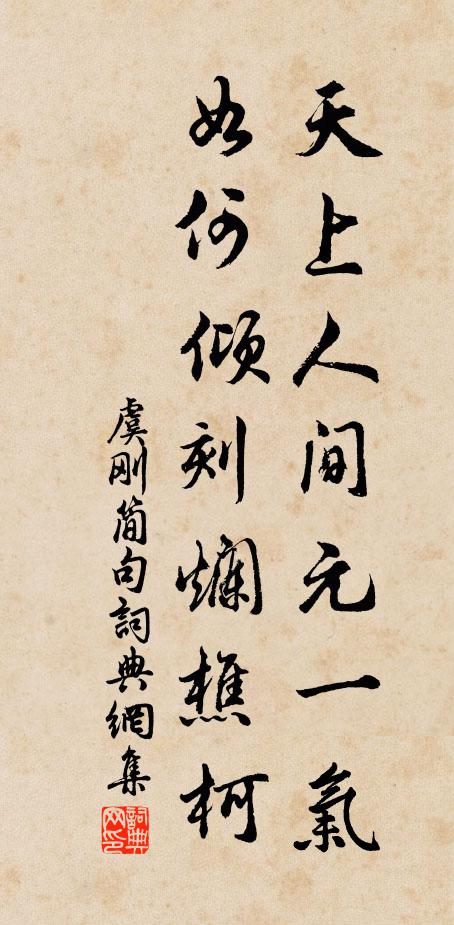 天上人间元一氣
如何倾刻爛樵柯
虞刚简句詞典網集
詞典网印